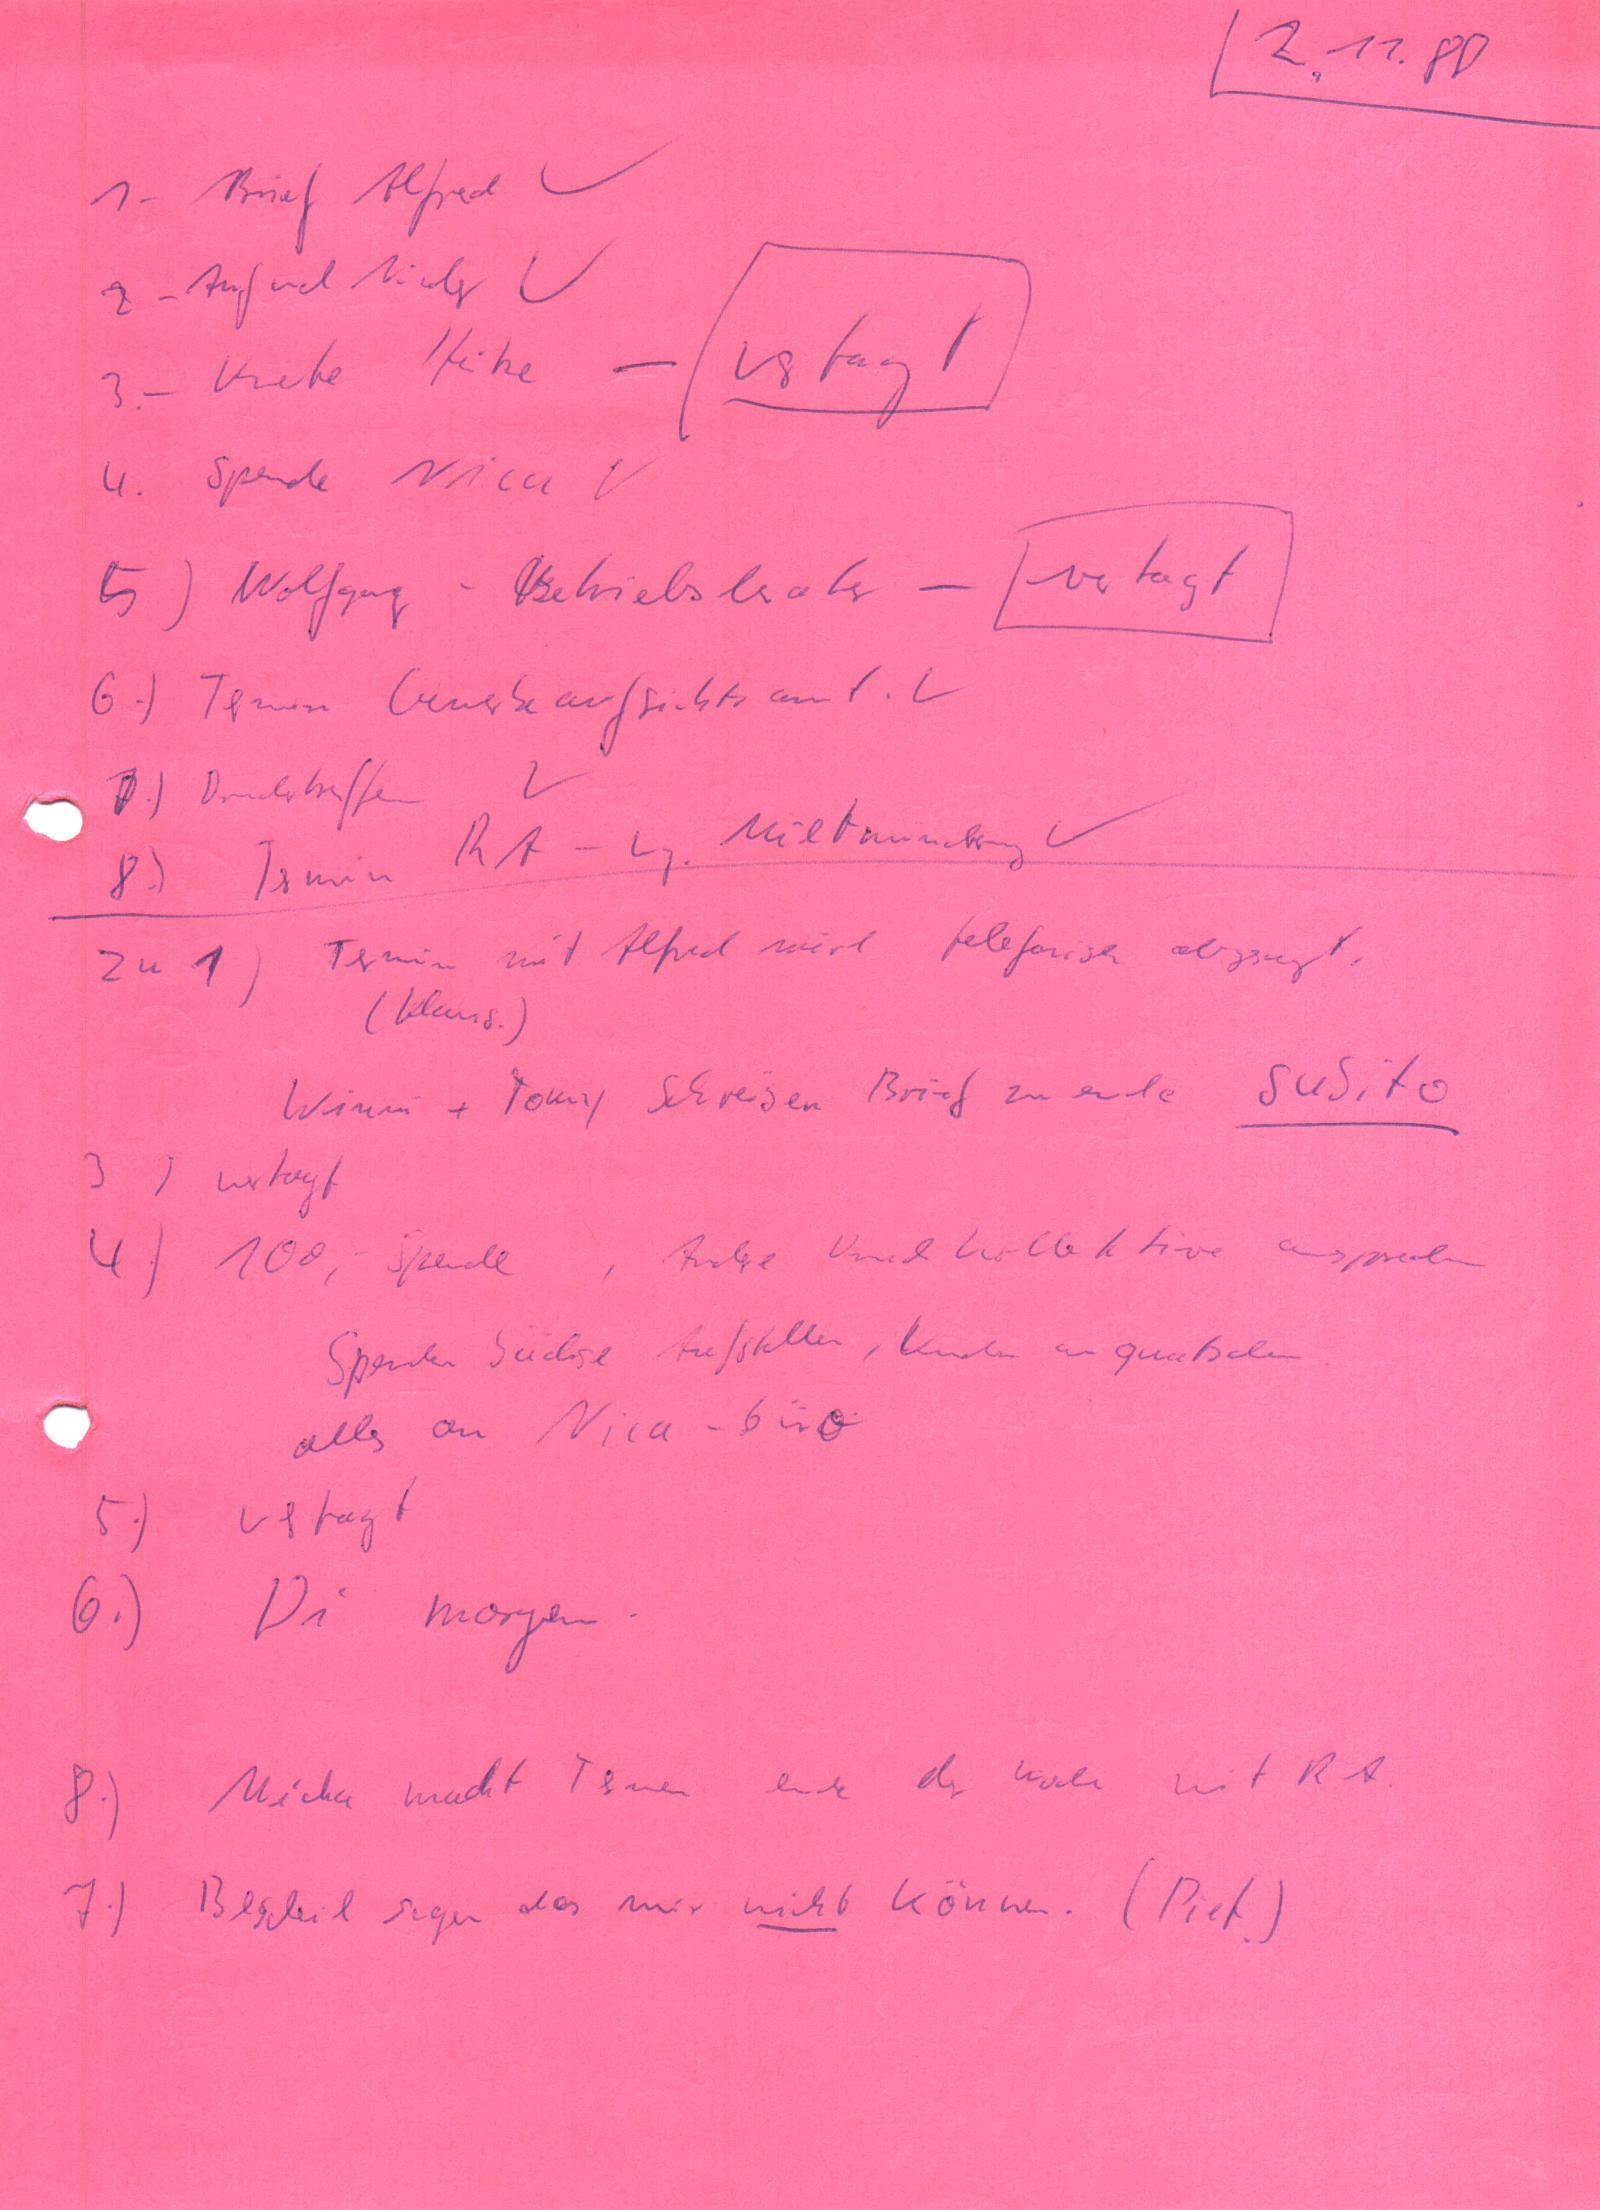 2.11.80
1- Brief Alfred ✓
2- Auf und Nieder ✓
3.- Knete Heike — vertagt
4. Spende Nica ✓
5) Wolfgang - Betriebsberater — vertagt
6.) Termin Gewerbeaufsichtsamt. ✓
7.) Druckertreffen ✓
8.) Termin RA - wg. Mietminderung ✓
zu 1) Termin mit Alfred wird telefonisch abgesagt.
(Klaus.)
Winni + Tomy schreiben Brief zu ende subito
3) vertagt
4.) 100,- Spende, Andre Druckkollektive ansprechen
Spenden Büchse Aufstellen, Kunden anquatschen
alles an Nica-büro
5.) vertagt
6.) Di morgen.
8.) Micha macht Termin ende der Woche mit RA.
7.) Bescheid sagen das wir nicht können. (Piet.)